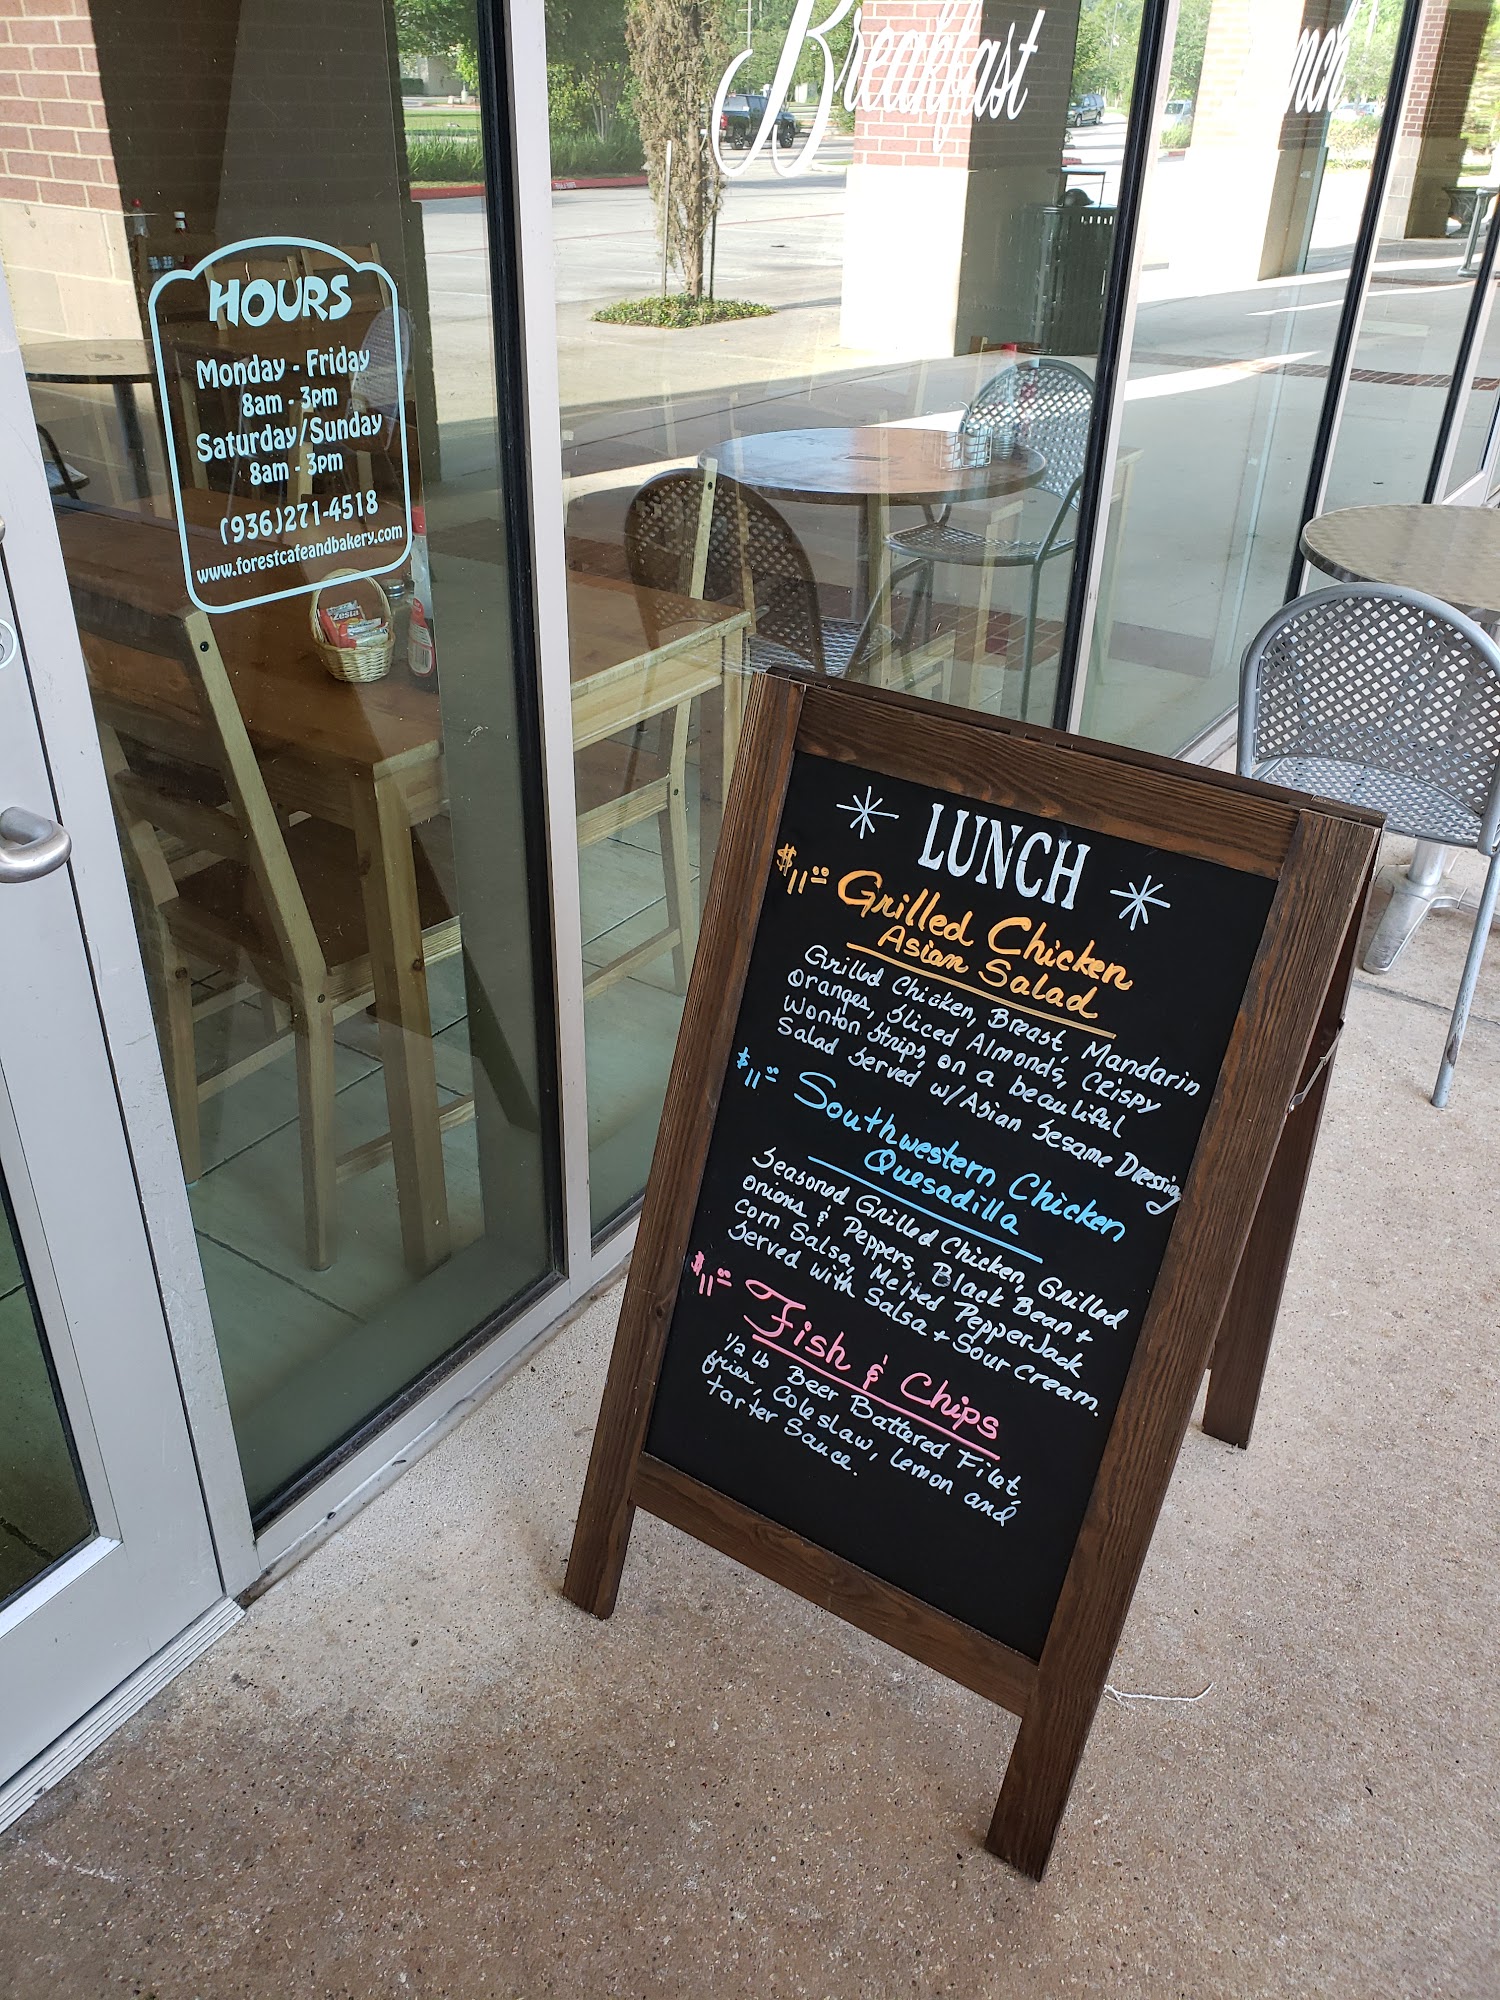 Breakfast
HOURS
Monday - Friday
8am - 3pm
Saturday/Sunday
8am - 3pm
(936)271-4518
www.forestcafeandbakery.com
Zesta
LUNCH
$11.00 Grilled Chicken
Asian Salad
Grilled Chicken, Breast, Mandarin
Oranges, Sliced Almonds, CRispy
Wonton Strips, on a beautiful
Salad Served w/Asian Sesame Dressing
$11.00 Southwestern Chicken
Quesadilla
Seasoned Grilled Chicken, Grilled
Onions & Peppers, Black Bean +
Corn Salsa, Melted PepperJack
Served with Salsa + Sour Cream.
$11.00 Fish & Chips
1/2 lb Beer Battered Filet,
fries, Coleslaw, Lemon and
Tarter Sauce.